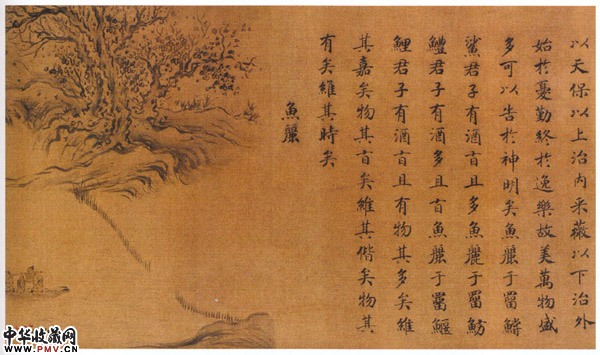 以天保以上治內采薇以下治外
始於憂勤終於逸樂故美萬物盛
多可以告於神明矣魚麗于罶鱨
鯊君子有酒旨且多魚麗于罶魴
鱧君子有酒多且旨魚麗于罶鰋
鯉君子有酒旨且有物其多矣維
其嘉矣物其旨矣維其偕矣物其
有矣維其時矣
魚麗
中华收藏网
WWW.PMV.CN